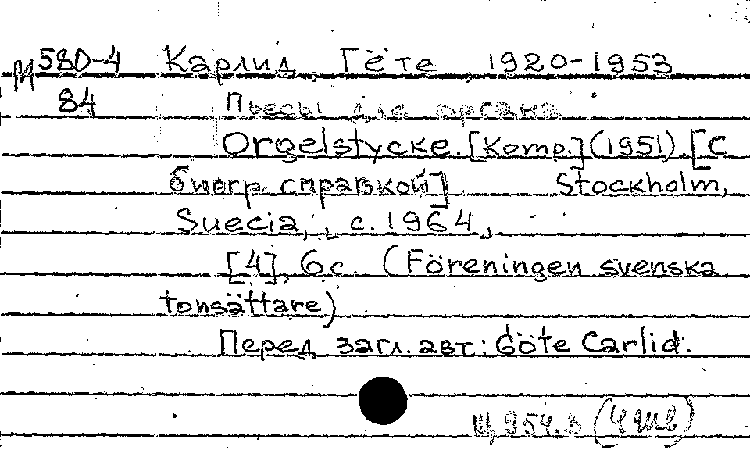 М 580-4 Карлид, Гёте, 1920-1953
84 Пьесы для органа
Orgelstycke. [Komp.] (1951) [С
биогр. справкой] Stockholm,
Suecia, с. 1964,
[4], 6 с. (Föreningen svenska
tonsättare)
Перед загл. авт.: Göte Carlid.